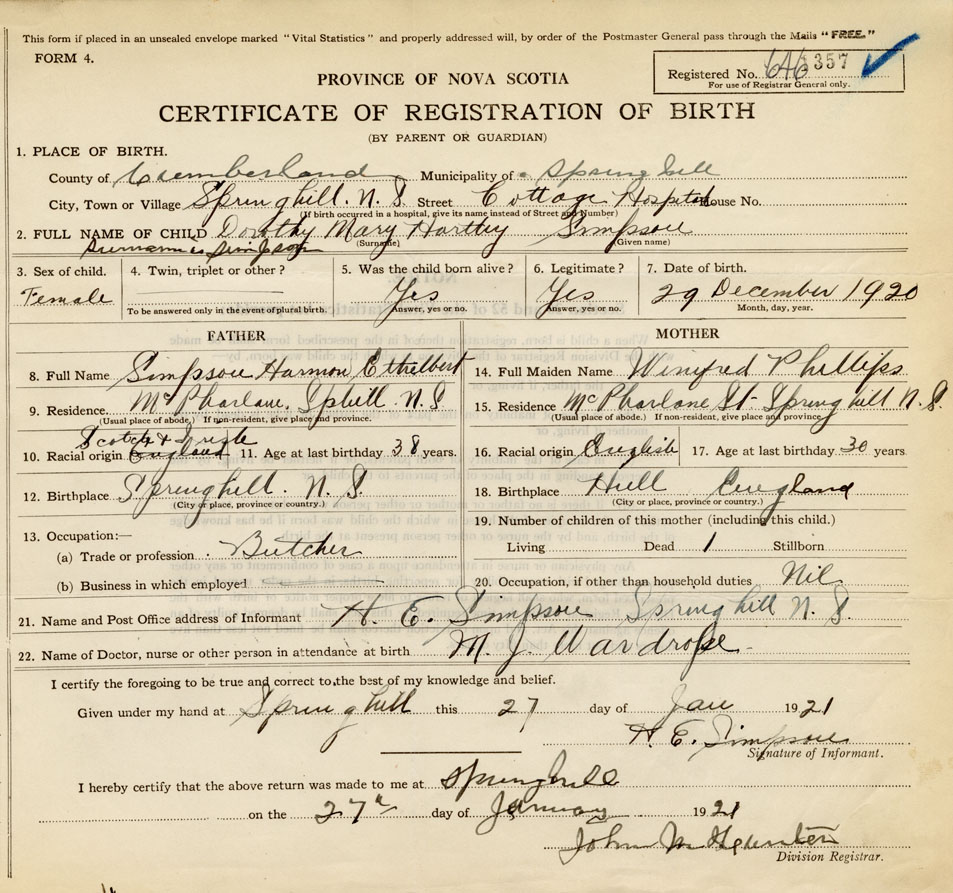 This form if placed in an unsealed envelope marked "Vital Statistics" and properly addressed will, by order of the Postmaster General pass through the Mails "FREE."
FORM 4.
Registered No. 646 357
For use of Registrar General only.
PROVINCE OF NOVA SCOTIA
CERTIFICATE OF REGISTRATION OF BIRTH
(BY PARENT OR GUARDIAN)
1. PLACE OF BIRTH.
County of Cumberland Municipality of Springhill
City, Town or Village Springhill. N. S. Street Cottage Hospital House No.
(If birth occurred in a hospital, give its name instead of Street and Number)
2. FULL NAME OF CHILD Dorothy Mary Hartley Simpson
(Surname) (Given name)
Surname is Simpson
3. Sex of child. Female
4. Twin, triplet or other?
To be answered only in the event of plural birth.
5. Was the child born alive? Yes
Answer, yes or no.
6. Legitimate? Yes
Answer, yes or no.
7. Date of birth. 29 December 1920
Month, day, year.
FATHER
8. Full Name Simpson Harmon Ethelbert
9. Residence. McPharlane, Sphill N. S
(Usual place of abode.) If non-resident, give place and province.
Scotch & Irish
10. Racial origin England 11. Age at last birthday 38 years.
12. Birthplace Springhill. N. S.
(City or place, province or country.)
13. Occupation:—
(a) Trade or profession Butcher
(b) Business in which employed
MOTHER
14. Full Maiden Name Winifred Phillips
15. Residence McPharlane St- Springhill N. S.
(Usual place of abode.) If non-resident, give place and province.
16. Racial origin English 17. Age at last birthday 30 years
18. Birthplace Hull England
(City or place, province or country.)
19. Number of children of this mother (including this child.)
Living Dead 1 Stillborn
20. Occupation, if other than household duties Nil
21. Name and Post Office address of Informant H. E. Simpson Springhill N. S.
22. Name of Doctor, nurse or other person in attendance at birth M. J. Wardrope
I certify the foregoing to be true and correct to the best of my knowledge and belief.
Given under my hand at Springhill this 27 day of Jan 1921
H. E. Simpson
Signature of Informant.
I hereby certify that the above return was made to me at Springhill
on the 27th day of January 1921
John M
Division Registrar.